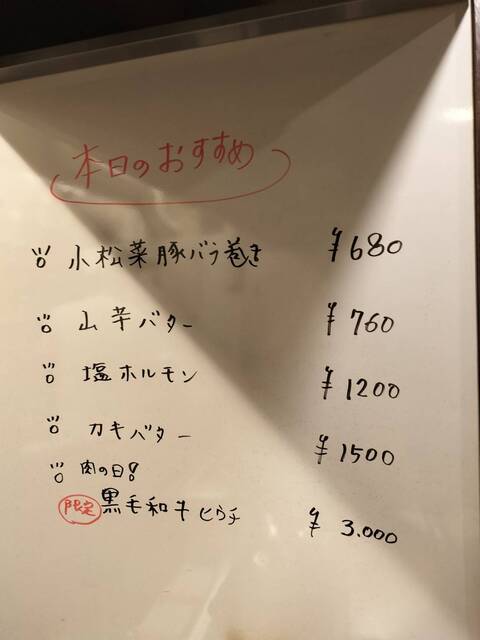 本日のおすすめ
小松菜豚バラ巻き ¥680
山芋バター ¥760
塩ホルモン ¥1200
カキバター ¥1500
肉の日!
限定 黒毛和牛ヒウチ ¥3.000